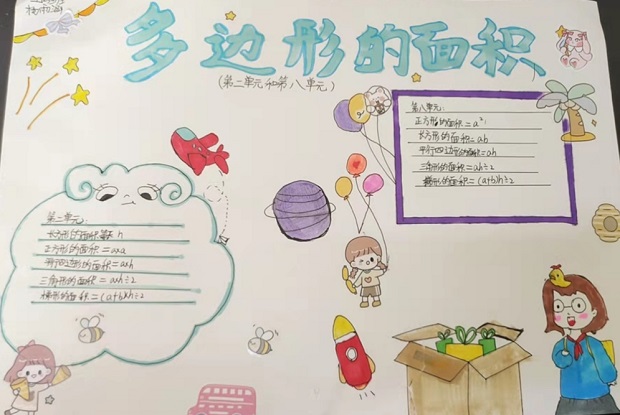 多边形的面积
(第二单元和第八单元)
第八单元:
正方形的面积=a²
长方形的面积=ab
平行四边形的面积=ah
三角形的面积=ah÷2
梯形的面积=(a+b)h÷2
第二单元:
长方形的面积
正方形的面积=axa
平行四边形的面积=axh
三角形的面积=axh÷2
梯形的面积=(a+b)xh÷2